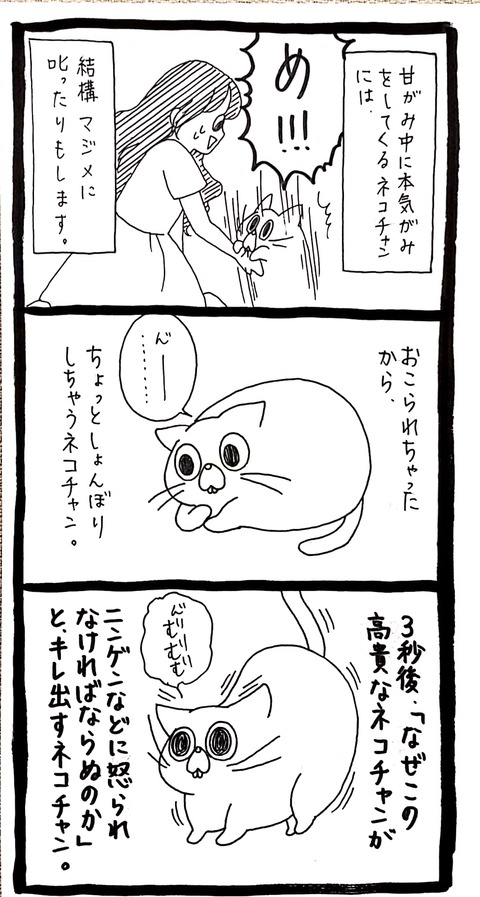 甘がみ中に本気がみ
をしてくるネコチャン
には、
め!!!
結構 マジメに
叱ったりもします。
おこられちゃった
から、
んー………
ちょっとしょんぼり
しちゃうネコチャン。
3秒後、「なぜこの
高貴なネコチャンが
んむむむむ
ニンゲンなどに怒られ
なければならぬのか」
と、キレ出すネコチャン。